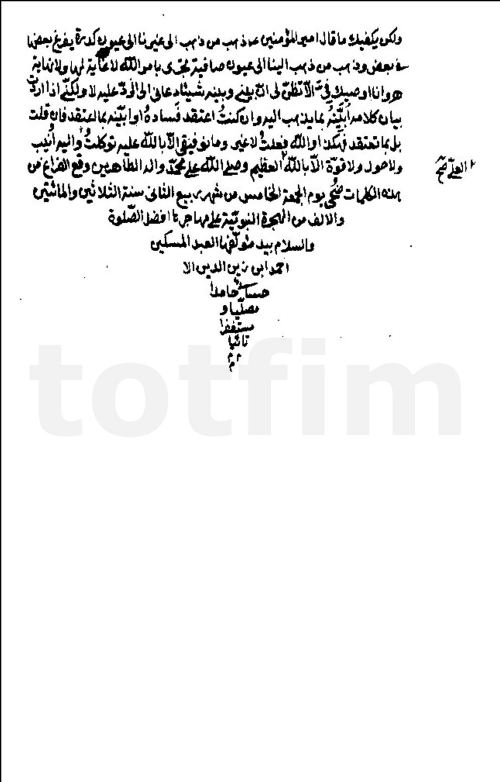 ولكن يكفيك ما قال امير المؤمنين ع ذهب من ذهب الى غيرنا الى عيون كدرة يفرغ بعضها
فى بعض وذهب من ذهب الينا الى عيون صافية تجرى بامر الله لا غاية لها ولا نهاية
هـ وانا اوصيك فى الا تظن لى انى بينى وبينه شيئا دعانى الى الرد عليه لا ولكنى اذا اردت
بيان كلامه ابينه بما يذهب اليه وان كنت اعتقد فساده اوابينه بما اعتقد فان قلت
بل بما تعتقد فهكذا والله فعلت لا غير وما توفيقى الا بالله عليه توكلت واليه انيب
ولا حول ولا قوة الا بالله العظيم وصلى الله على محمد واله الطاهرين وقع الفراغ من
العلى صح
هذه الكلمات ضحى يوم الجمعة الخامس من شهر ربيع الثانى سنة الثلاثين والمائتين
والالف من الهجرة النبوية على مهاجرها افضل الصلوة
والسلام بيد مؤلفها العبد المسكين
احمد ابن زين الدين الا
حسائى حامدا
مصليا و
مستغفرا
تائبا
م م
م
totfim